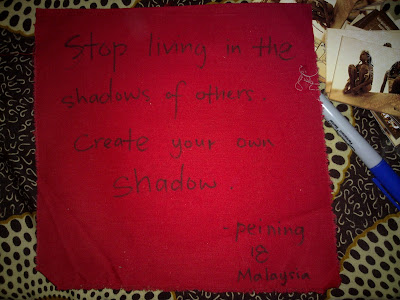 Stop living in the
shadows of others.
Create your own
shadow.
- peining
19
Malaysia